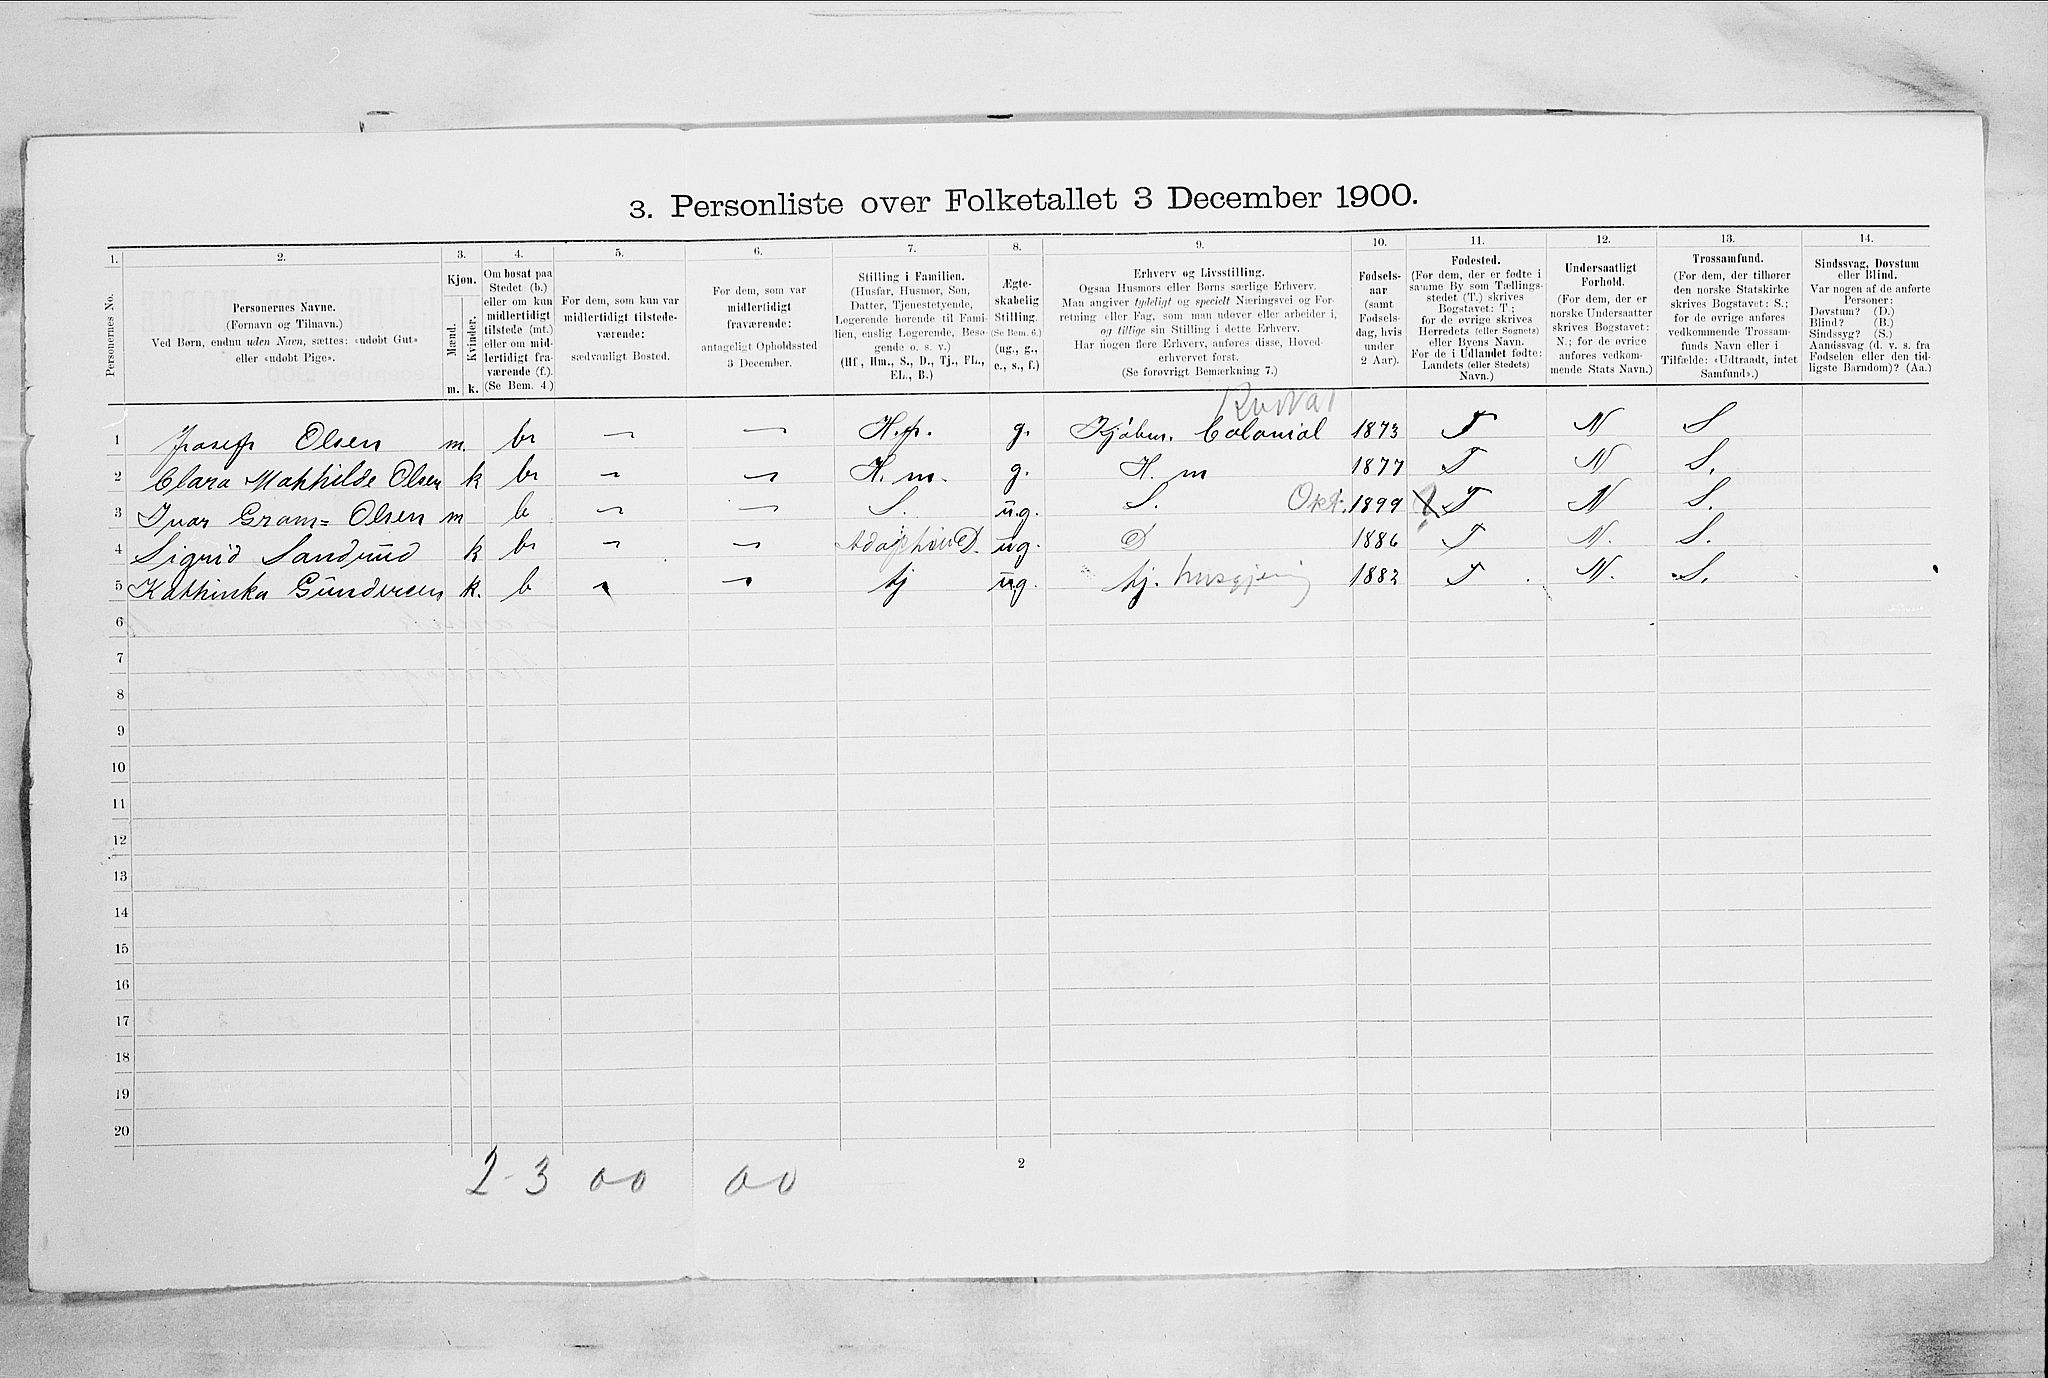 3. Personliste over Folketallet 3 December 1900.
1. 2. 3. 4. 5. 6. 7. 8. 9. 10. 11. 12. 13. 14.
Personernes No.
Personernes Navne.
(Fornavn og Tilnavn.)
Ved Børn, endnu uden Navn, sættes: «udøbt Gut»
eller «udøbt Pige».
Kjøn.
Mænd.
Kvinder.
m. k.
Om bosat paa
Stedet (b.)
eller om kun
midlertidigt
tilstede (mt.)
eller om mid-
lertidigt fra-
værende (f.).
(Se Bem. 4.)
For dem, som kun var
midlertidigt tilstede-
værende:
sædvanligt Bosted.
For dem, som var
midlertidigt
fraværende:
antageligt Opholdssted
3 December.
Stilling i Familien.
(Husfar, Husmor, Søn,
Datter, Tjenestetyende,
Logerende hørende til Fami-
lien, enslig Logerende, Besø-
gende o. s. v.)
(Hf., Hm., S., D., Tj., FL.,
EL., B.)
Ægte-
skabelig
Stilling.
(Se Bem. 6.)
(ug., g.,
e., s., f.)
Erhverv og Livsstilling.
Ogsaa Husmors eller Børns særlige Erhverv.
Man angiver tydeligt og specielt Næringsvei og For-
retning eller Fag, som man udøver eller arbeider i,
og tillige sin Stilling i dette Erhverv.
Har nogen flere Erhverv, anføres disse, Hoved-
erhvervet først.
(Se forøvrigt Bemærkning 7.)
Fødsels-
aar
(samt
Fødsels-
dag, hvis
under
2 Aar).
Fødested.
(For dem, der er fødte i
samme By som Tællings-
stedet (T.) skrives
Bogstavet: T.;
for de øvrige skrives
Herredets (eller Sognets)
eller Byens Navn.
For de i Udlandet fødte:
Landets (eller Stedets)
Navn.)
Undersaatligt
Forhold.
(For dem, der er
norske Undersaatter
skrives Bogstavet:
N.; for de øvrige
anføres vedkom-
mende Stats Navn.)
Trossamfund.
(For dem, der tilhører
den norske Statskirke
skrives Bogstavet: S.;
for de øvrige anføres
vedkommende Trossam-
funds Navn eller i
Tilfælde: «Udtraadt, intet
Samfund».)
Sindssvag, Døvstum
eller Blind.
Var nogen af de anførte
Personer:
Døvstum? (D.)
Blind? (B.)
Sindssyg? (S.)
Aandssvag (d. v. s. fra
Fødselen eller den tid-
ligste Barndom)? (Aa.)
1 Josef Olsen m. b — — H.f. g. Kjøbm. Colonial 1873 T N S
2 Clara Mathilde Olsen k b — — H. m. g. H. m 1877 T N S.
3 Ivar Gram= Olsen m b — — S. ug. S. Okt. 1899 T N S.
4 Sigrid Sandrud k b — — D. ug. D 1886 T N. S.
5 Kathinka Gundersen k. b — — tj ug. tj. husgjerning 1882 T N. S.
6
7
8
9
10
11
12
13
14
15
16
17
18
19
20
2-3 00 00
2